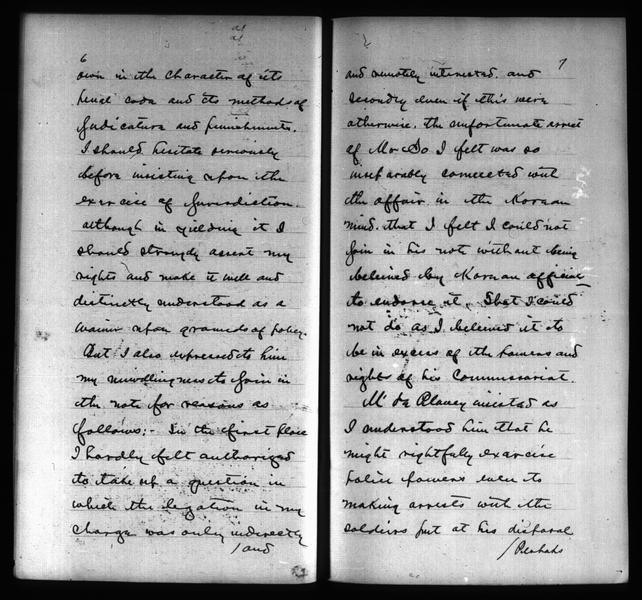 6
own in the character of its
penal code and its methods of
Judicature and punishments.
I should hesitate seriously
before insisting upon the
exercise of Jurisdiction.
although in yielding it I
should strongly assert my
rights and make it well and
distinctly understood as a
waiver upon grounds of policy.
But I also expressed to him
my unwillingness to join in
the note for reasons as
follows:- In the first place
I hardly felt authorized
to take up a question in
which the legation in my
charge was only indirectly
/and
7
and remotely interested. and
secondly even if this were
otherwise. the unfortunate arrest
of Mr So I felt was so
inseparably connected with
the affair in the Korean
mind. that I felt I could not
join in his not without being
believed by Korean officials
to endorse it, that I could
not do as I believed it to
be in excess of the powers and
rights of his Commissariat.
Mr de Plancy insisted as
I understood him that he
might rightfully exercise
police powers even to
making arrests with the
soldiers put at his disposal
/Perhaps